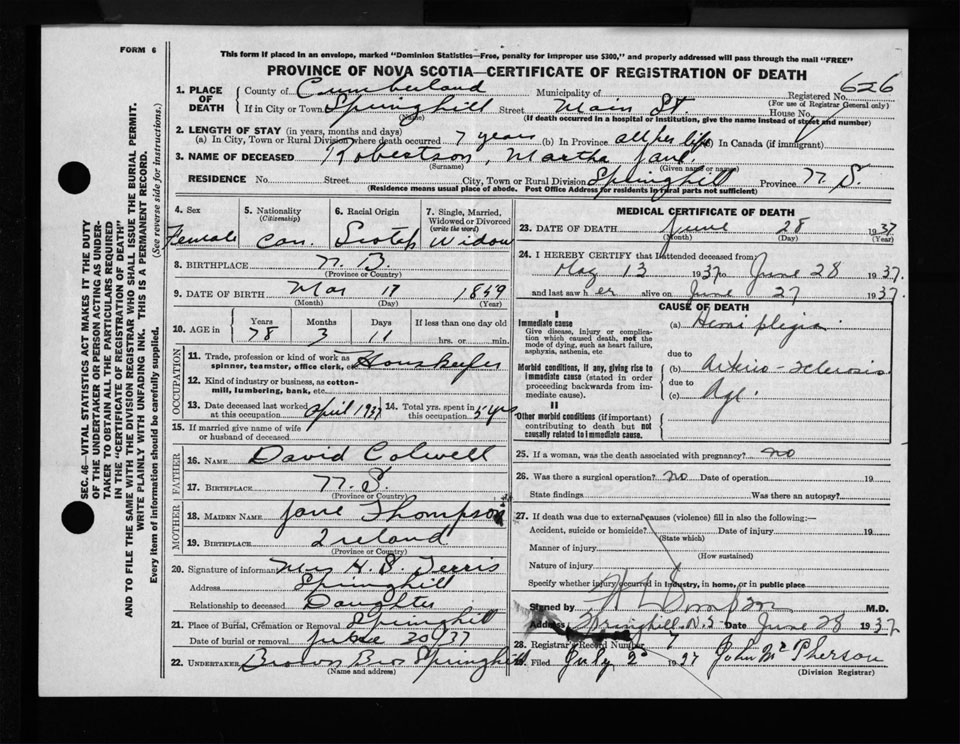 FORM 6
This form if placed in an envelope, marked "Dominion Statistics—Free, penalty for improper use $300," and properly addressed will pass through the mail "FREE"
PROVINCE OF NOVA SCOTIA—CERTIFICATE OF REGISTRATION OF DEATH
626
1. PLACE OF DEATH
County of Cumberland Municipality of Registered No.
(For use of Registrar General only)
If in City or Town Springhill Street Main St. House No.
(Name) (If death occurred in a hospital or institution, give the name instead of street and number)
2. LENGTH OF STAY (in years, months and days)
(a) In City, Town or Rural Division where death occurred 7 years (b) In Province all her life (c) In Canada (if immigrant)
3. NAME OF DECEASED Robertson, Martha Jane.
(Surname) (Given name or names)
RESIDENCE No. Street City, Town or Rural Division Springhill Province N. S.
(Residence means usual place of abode. Post Office Address for residents in rural parts not sufficient)
4. Sex
Female
5. Nationality
(Citizenship)
Can.
6. Racial Origin
Scotch
7. Single, Married, Widowed or Divorced
(write the word)
Widow
8. BIRTHPLACE N. B.
(Province or Country)
9. DATE OF BIRTH Mar 17 1859
(Month) (Day) (Year)
10. AGE in
Years Months Days If less than one day old
78 3 11 hrs. or min.
OCCUPATION
11. Trade, profession or kind of work as spinner, teamster, office clerk, etc. Housekeeper
12. Kind of industry or business, as cotton-mill, lumbering, bank, etc.
13. Date deceased last worked at this occupation April 1937 14. Total yrs. spent in this occupation 54 yrs
15. If married give name of wife or husband of deceased
FATHER
16. NAME David Colwell
17. BIRTHPLACE N. S.
(Province or Country)
MOTHER
18. MAIDEN NAME Jane Thompson
19. BIRTHPLACE Ireland
(Province or Country)
20. Signature of informant Mrs H. B. Ferris
Address Springhill
Relationship to deceased Daughter
21. Place of Burial, Cremation or Removal Springhill
Date of burial or removal June 30 37
22. UNDERTAKER Brown Bros Springhill
(Name and address)
MEDICAL CERTIFICATE OF DEATH
23. DATE OF DEATH June 28 1937
(Month) (Day) (Year)
24. I HEREBY CERTIFY that I attended deceased from:
May 13 1937 to June 28 1937.
and last saw h er alive on June 27 1937.
CAUSE OF DEATH
I
Immediate cause
Give disease, injury or complication which caused death, not the mode of dying, such as heart failure, asphyxia, asthenia, etc
(a) Hemiplegia
due to
Morbid conditions, if any, giving rise to immediate cause (stated in order proceeding backwards from immediate cause).
(b) Arterio-sclerosis
due to
(c) Age.
II
Other morbid conditions (if important) contributing to death but not causally related to immediate cause.
25. If a woman, was the death associated with pregnancy? no
26. Was there a surgical operation? no Date of operation 19
State findings Was there an autopsy?
27. If death was due to external causes (violence) fill in also the following:—
Accident, suicide or homicide? Date of injury 19
(State which)
Manner of injury
(How sustained)
Nature of injury
Specify whether injury occurred in industry, in home, or in public place
Signed by M.D.
Address Springhill N.S Date June 28 1937
28. Registrar's Record Number 7
Filed July 2 1937 John McPherson
(Division Registrar)
SEC. 46—VITAL STATISTICS ACT MAKES IT THE DUTY
OF THE UNDERTAKER OR PERSON ACTING AS UNDER-
TAKER TO OBTAIN ALL THE PARTICULARS REQUIRED
IN THE "CERTIFICATE OF REGISTRATION OF DEATH"
AND TO FILE THE SAME WITH THE DIVISION REGISTRAR WHO SHALL ISSUE THE BURIAL PERMIT.
WRITE PLAINLY WITH UNFADING INK. THIS IS A PERMANENT RECORD.
Every item of information should be carefully supplied. (See reverse side for instructions.)